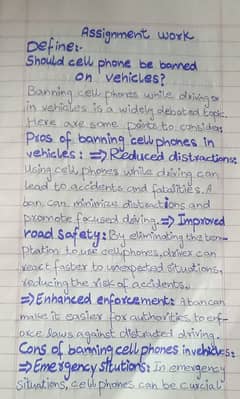 Assignment work
Define:-
Should cell phone be banned
on vehicles?
Banning cell phones while driving or
in vehicles is a widely debated topic.
Here are some points to consider
Pros of banning cell phones in
vehicles: ⇒ Reduced distractions:
Using cell phones while driving can
lead to accidents and fatalities. A
ban, can minimize distractions and
promote focused driving. ⇒ Improved
road safety: By eliminating the tem-
ptation to use cellphones, driver can
react faster to unexpected situations,
reducing the risk of accidents.
⇒ Enhanced enforcement: A ban can
make it easier for authorities to enf-
orce laws against distracted driving.
Cons of banning cell phones in vehicles:
⇒ Emergency situtions: In emergency
situations, cell phones can be curcial